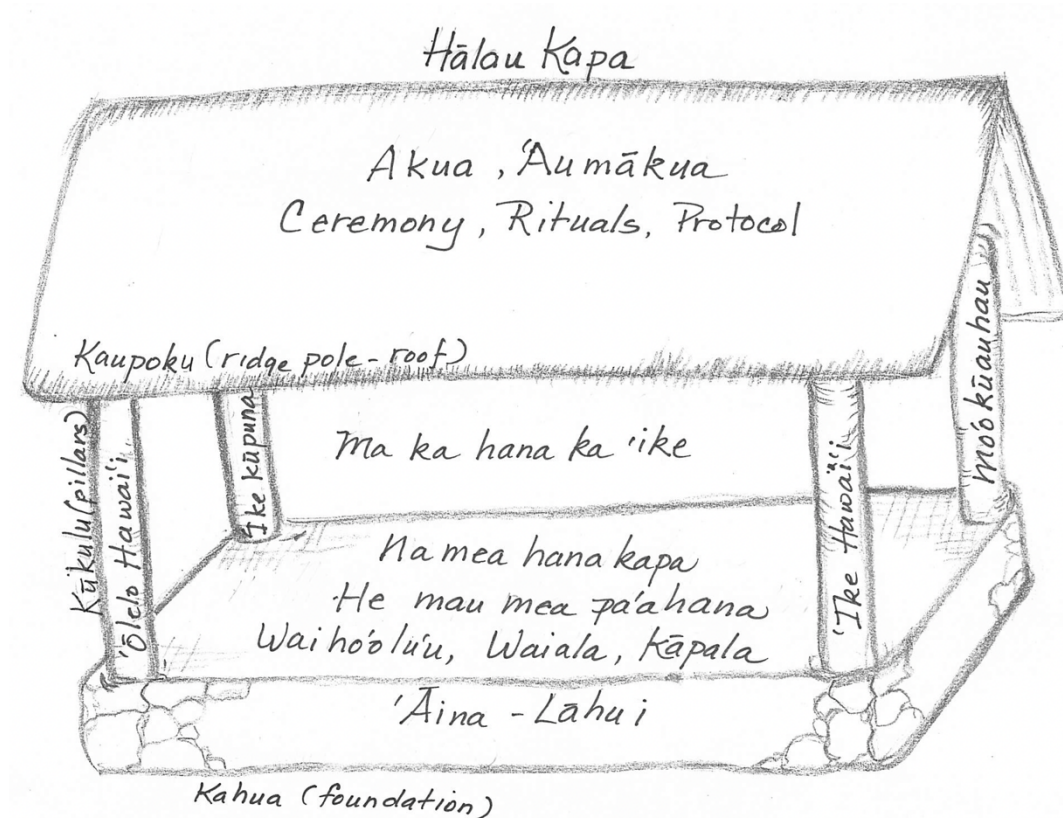 Hālau Kapa
Akua, ʻAumākua
Ceremony, Rituals, Protocol
Kaupoku (ridge pole - roof)
Kūkulu (pillars)
ʻŌlelo Hawaiʻi
ʻIke kūpuna
Ma ka hana ka ʻike
ʻIke Hawaiʻi
Moʻokūauhau
Na mea hana kapa
He mau mea paʻahana
Waihoʻoluʻu, Waiala, Kāpala
ʻĀina - Lāhui
Kahua (foundation)